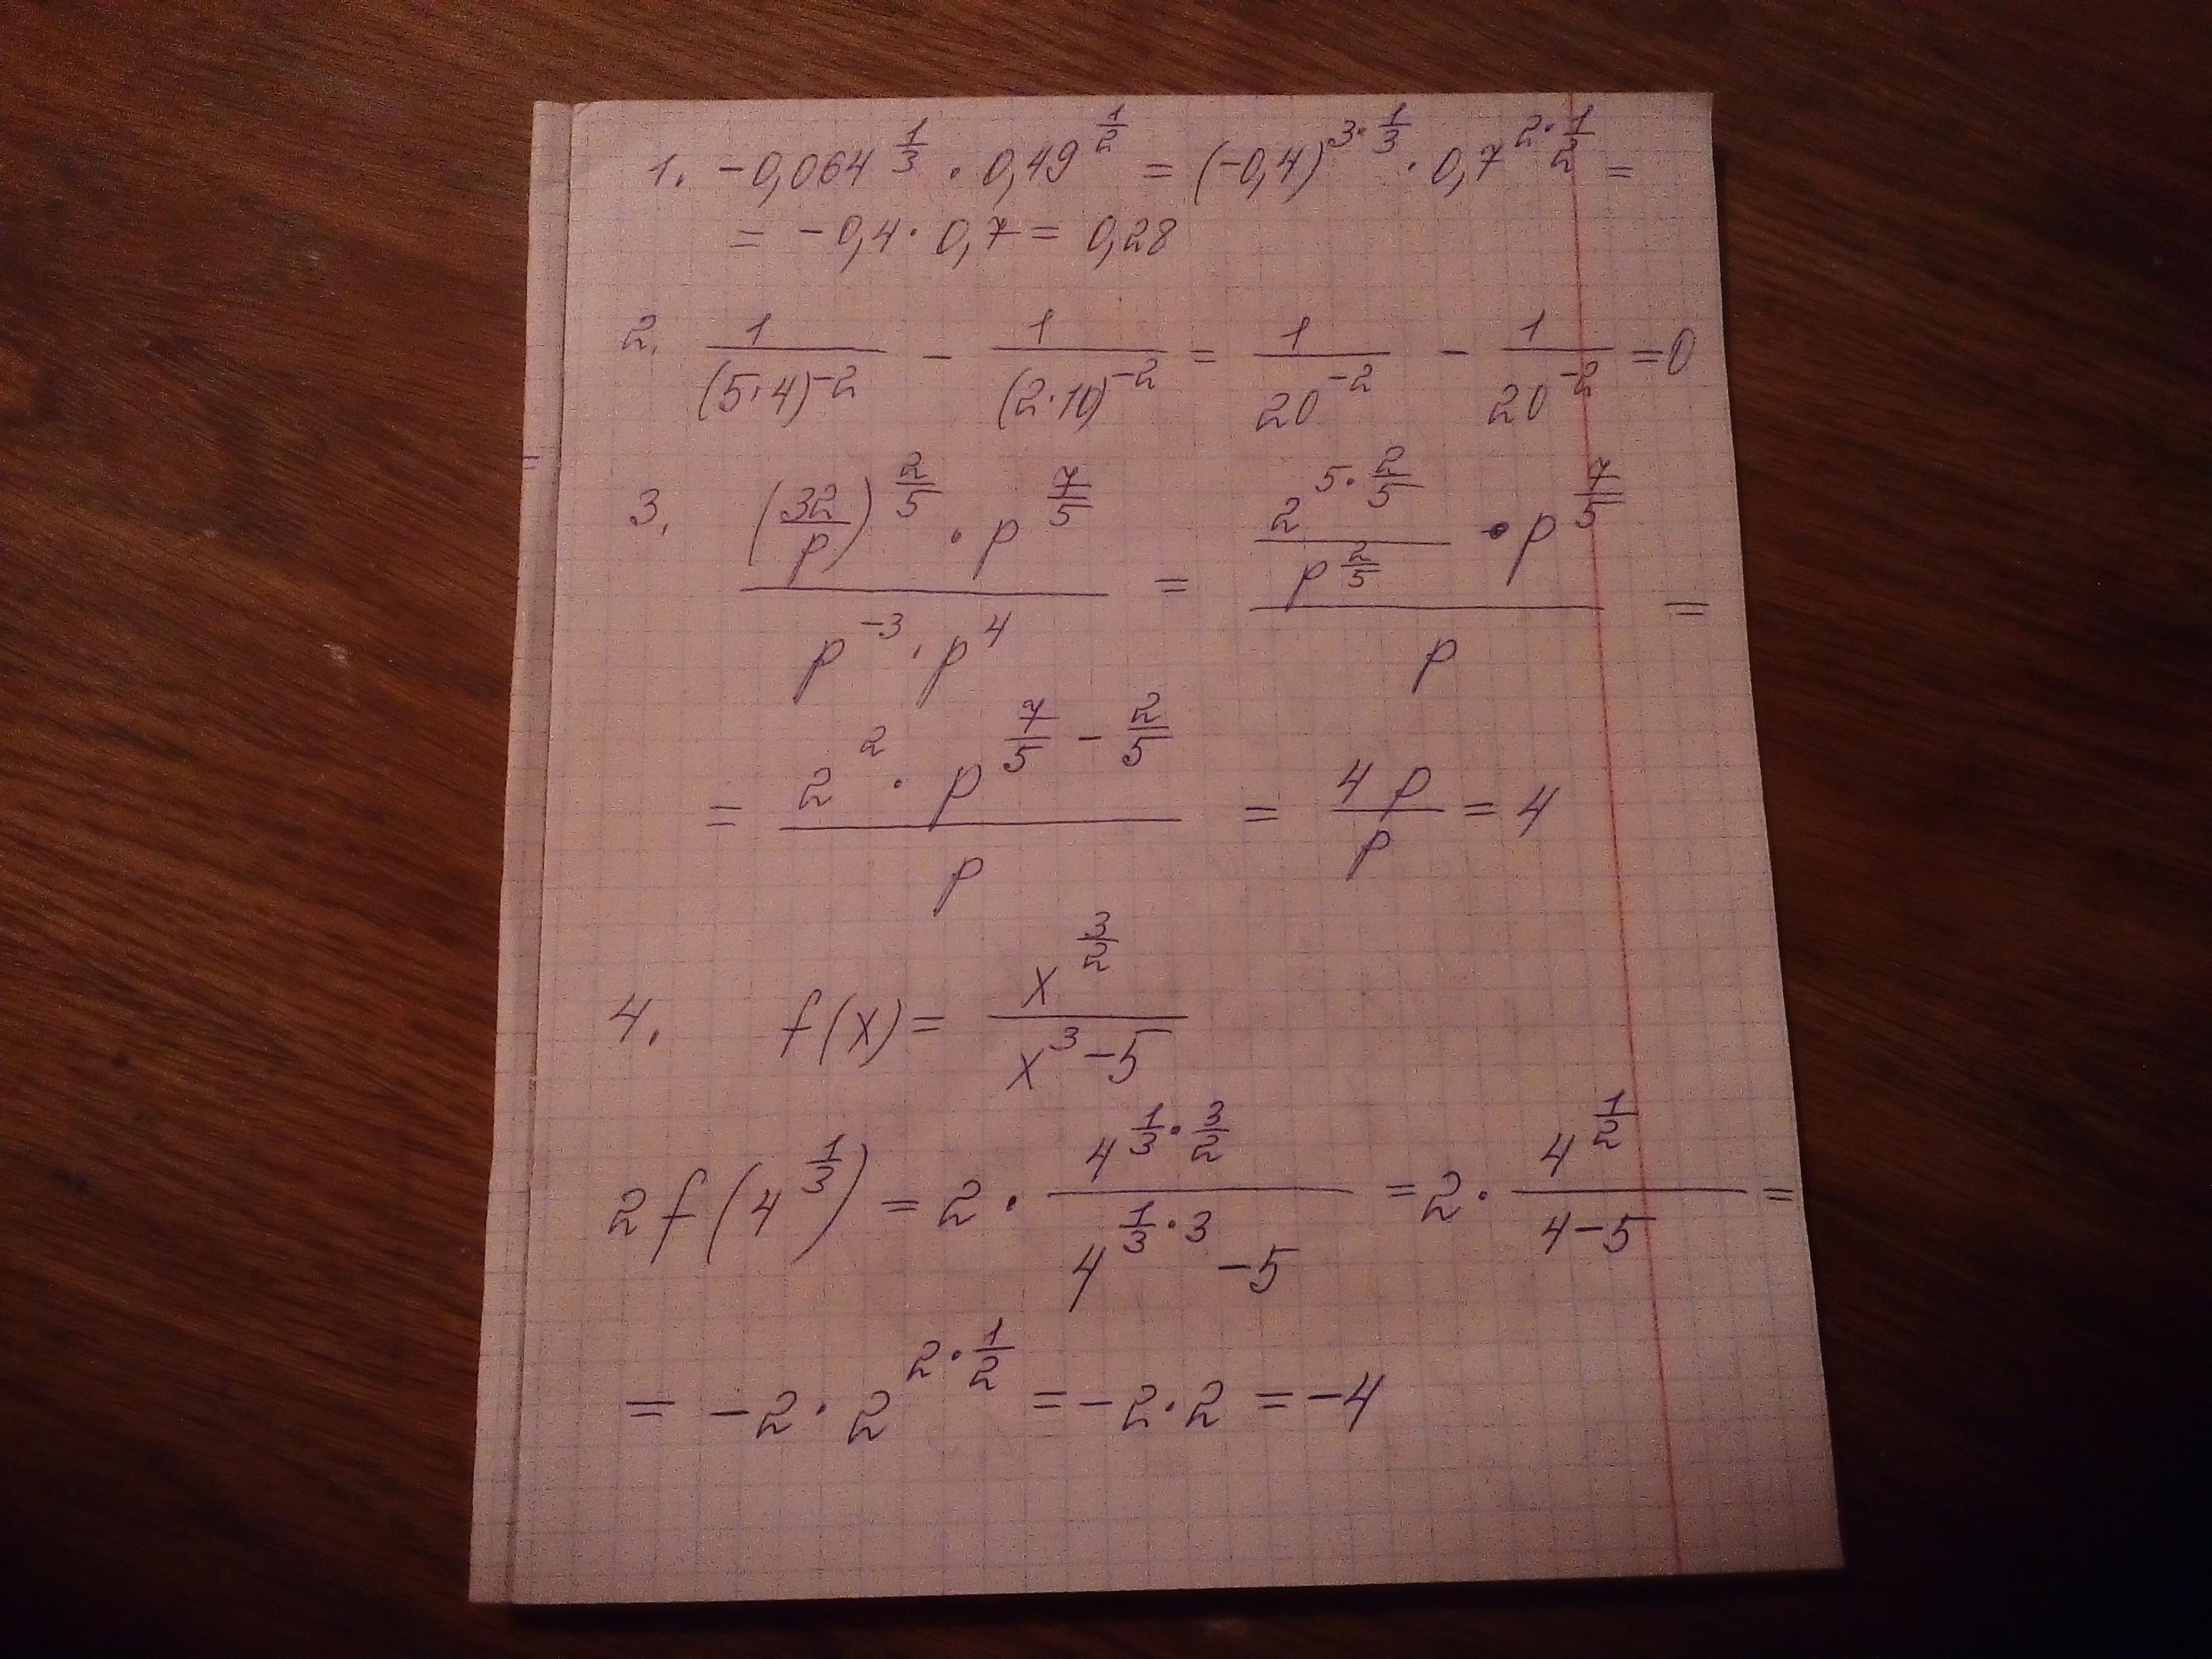 1. -0,064^(1/3) · 0,49^(1/2) = (-0,4)^(3·1/3) · 0,7^(2·1/2) =
= -0,4 · 0,7 = 0,28
2. 1/(5·4)^(-2) - 1/(2·10)^(-2) = 1/20^(-2) - 1/20^(-2) = 0
3. ((32/p)^(2/5) · p^(7/5))/(p^(-3) · p^4) = ((2^(5·2/5))/(p^(2/5)) · p^(7/5))/p =
= (2^2 · p^(7/5 - 2/5))/p = 4p/p = 4
4. f(x) = x^(3/2)/(x^3 - 5)
2f(4^(1/3)) = 2 · 4^(1/3·3/2)/(4^(1/3·3) - 5) = 2 · 4^(1/2)/(4-5) =
= -2 · 2^(2·1/2) = -2·2 = -4